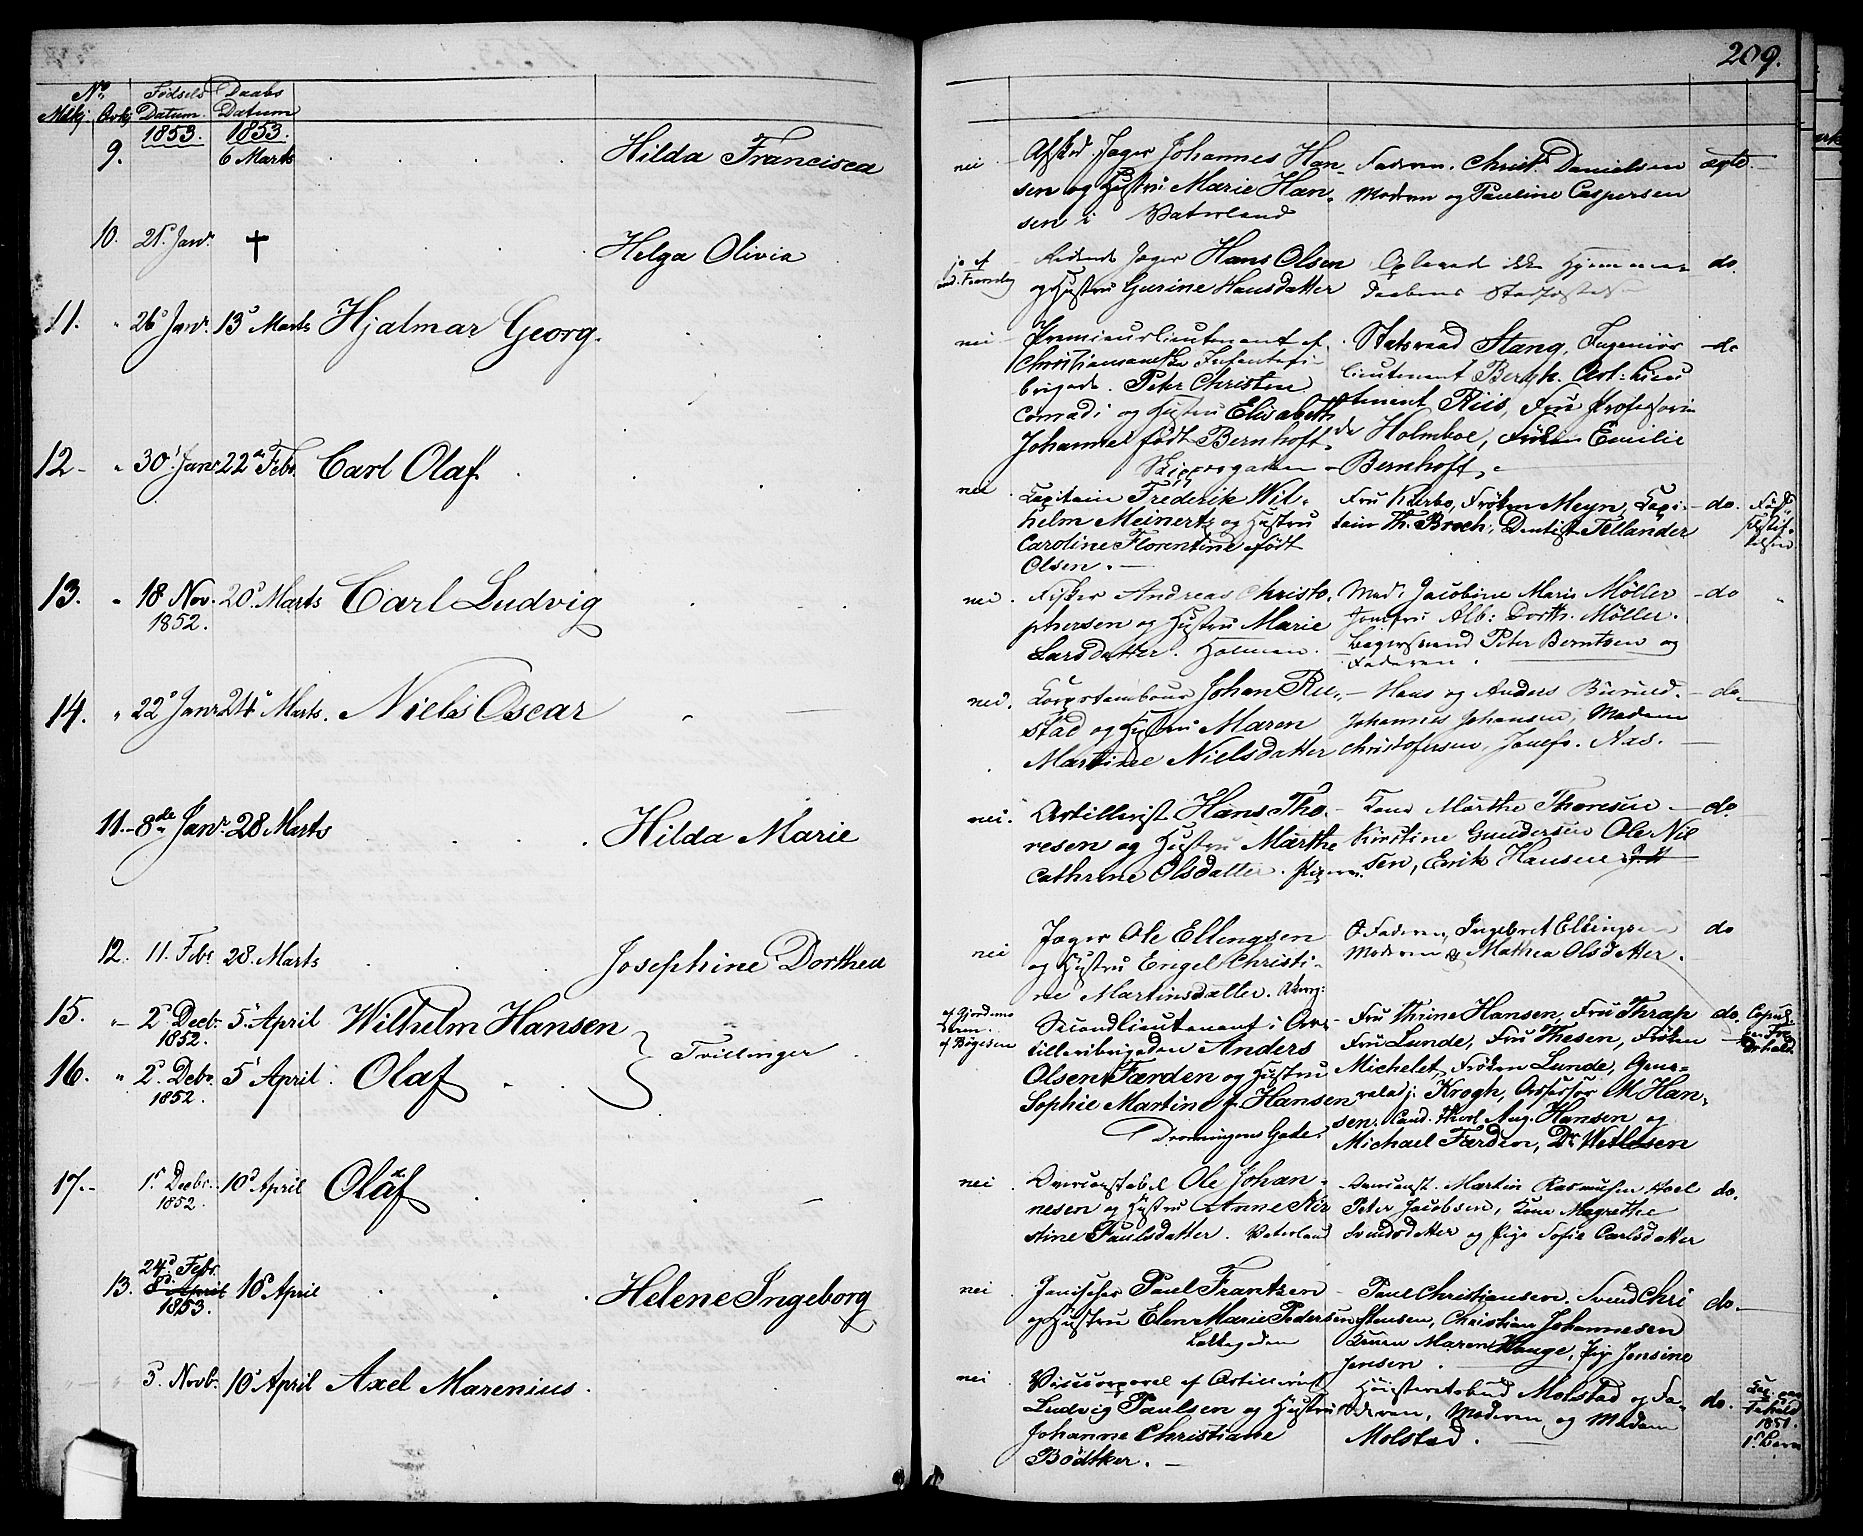 209.
No
Mdkj. Qvkj
Fødsels Datum
Daabs Datum
1853. 1853.
9. 6 Marts Hilda Francisca
nei Afsked Jæger Johannes Han-
sen og Hustru Marie Han-
sen i Vaterland
Faderen. Christ. Danielsen
Moderen og Pauline Caspersen
ægte
10. 21 Janr. † Helga Olivia
Jæger Hans Olsen
og Hustru Gurine Hansdatter
ikke
Daabens
do.
11. " 26 Janr. 13 Marts Hjalmar Georg.
nei Premieurlieutenant af
Christiansandske Infanteri-
brigade. Peter Christen
Conradi og Hustru Elisabeth
Johanne født Bernhoft
Skippergaden
Statsraad Stang, Ingeniør
lieutenant Bergh. Art: Lieu
tenant Riis, Fru Professorin
de Holmboe, Frøken Emilie
Bernhoft.
do
12 " 30 Janr 22 Febr. Carl Olaf.
nei Capitain Frederik Wil-
helm Meinertz og Hustru
Caroline Florentine født
Olsen.
Fru Kierbo, Frøken Meyn, Capi-
tain Th. Broch, Dentist Tellander
do.
13. " 18 Nov. 20 Marts Carl Ludvig
1852.
nei Fisker Andreas Christo-
phersen og Hustru Marie
Larsdatter. Holmen.
Mad. Jacobine Marie Møller
Jomfru Alb: Dorth. Møller.
Peter Berntsen og
Faderen.
do "
14. " 22 Janr 24 Marts. Niels Oscar
nei. Corpstambour Johan Ru-
stad og Hustru Maren
Martine Nielsdatter
Hans og Anders Burud.
Johannes Johansen, Madam
Christofersen, Jomfr. Aas.
do
11. 8de Janr. 28 Marts Hilda Marie
nei. Artillerist Hans Tho-
resen og Hustru Marthe
Cathrine Olsdatter.
Kone Marthe Thoresen
Kirstine Gundersen Ole Nil
sen, Erik Hansen
do.
12. 11. Febr 28. Marts Josephine Dorthea
nei Jæger Ole Ellingsen
og Hustru Engel Christi-
ne Martinsdatter.
Faderen, Ingebret Ellingsen
Moderen og Mathea Olsdatter.
do
15. " 2 Decbr. 5 April Wilhelm Hansen
1852.
16. " 2 Decbr. 5 April Olaf
1852.
Tvillinger
af Gjordemo
deren
af Bøgesen
Secondlieutenant i Ar-
tilleribrigaden Anders
Olsen Færden og Hustru
Sophie Martine f. Hansen
Dronningens Gade.
Fru Thrine Hansen, Fru Thrap
Fru Lunde, Fru Thesen, Frøken
Michelet, Frøken Lunde, Gene-
ralaj. Krogh, Assessor M Han-
sen, Cand. theol. Aug. Hansen og
Michael Færden, Dr Wetlesen
do.
17. 1. Decbr. 10 April Olaf
1852.
nei Overconstabel Ole Johan-
nesen og Hustru Anne Kir
stine Paulsdatter. Vaterland
Overconst. Martin Rasmussen Hoel
Peter Jacobsen, Kone Magrethe
Svendsdatter og Pige Sofie Carlsdatter
do.
13. 24 Febr.
April 10 April Helene Ingeborg
1853.
nei Janitschar Paul Frantzen
og Hustru Elen Marie Pedersen
Lakkegaden
Paul Christiansen, Svend Chri
stensen, Christian Johannesen
Konen Maren Hauge, Pige Jensine
Jensen.
do.
" " 3 Novb. 10 April Axel Marenius.
nei Vicecorporal af Artilleriet
Ludvig Paulsen og Hustru
Johanne Christiane
Bødtker.
Molstad og Fa-
deren, Moderen og Madam
Molstad.
do.
1851.